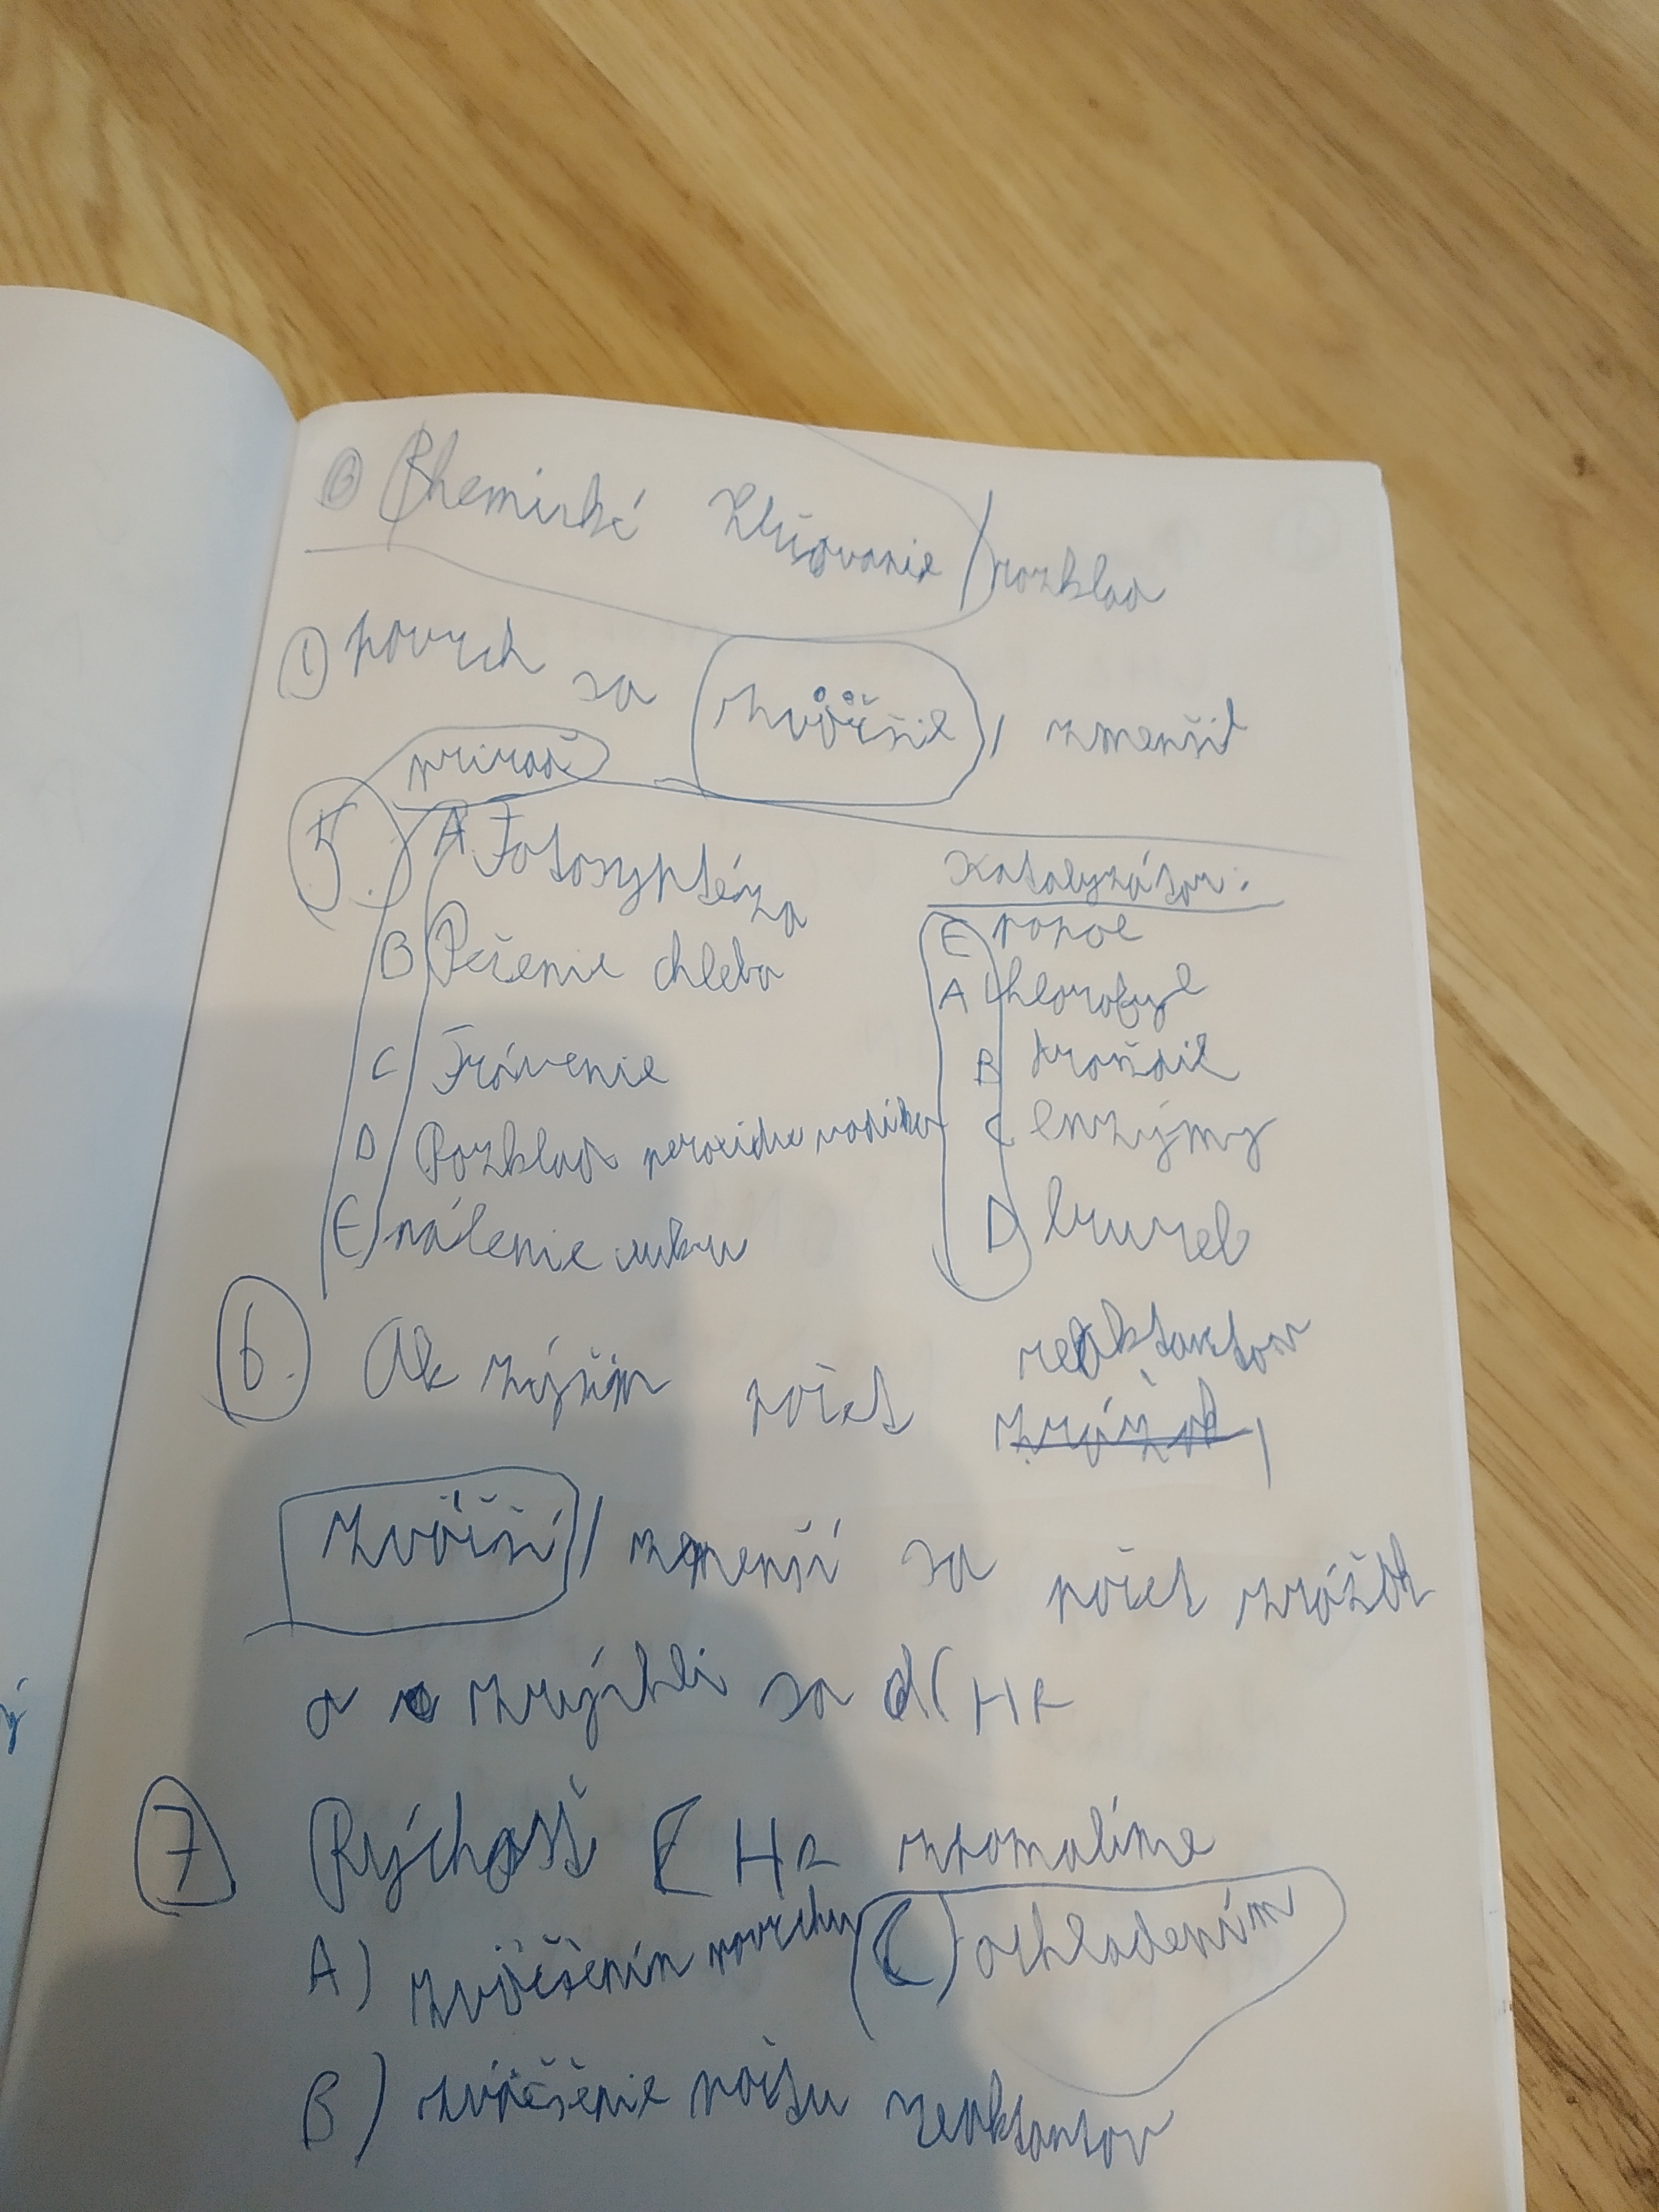 Chemické zlučovanie / rozklad
① povrch sa zväčšil / zmenšil
priraď
5. A Fotosyptéza
Katalyzátor:
E popol
B Pečenie chleba
A chlorofyl
C Trávenie
B droždie
D Rozklad peroxidu vodíku
C enzýmy
E pálenie cukru
D burel
6. Ak zvýšim počet reaktantov
zrážok,
zväčší / zmenší sa počet zrážok
a zrýchli sa CHR
7 Rýchosť CHR spomalíme
A) zväčšením povrchu
C) ochladením
B) zväčšenie počtu reaktantov